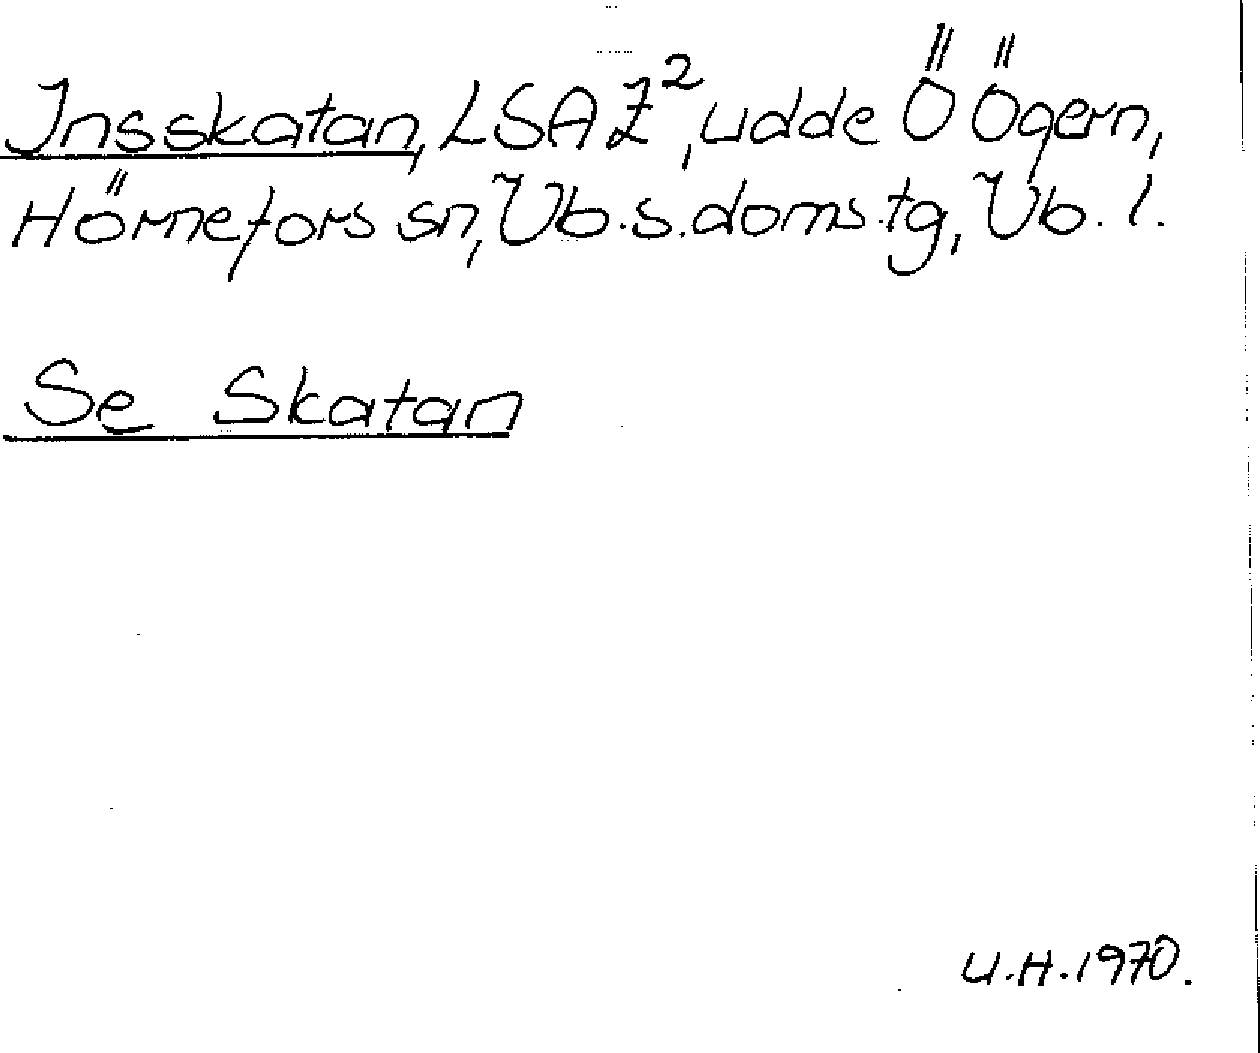 Insskatan, LSA Z², udde Ö Ögern,
Hörnefors sn, Vb.s.doms.tg, Vb. l.
Se Skatan
U.H.1970.